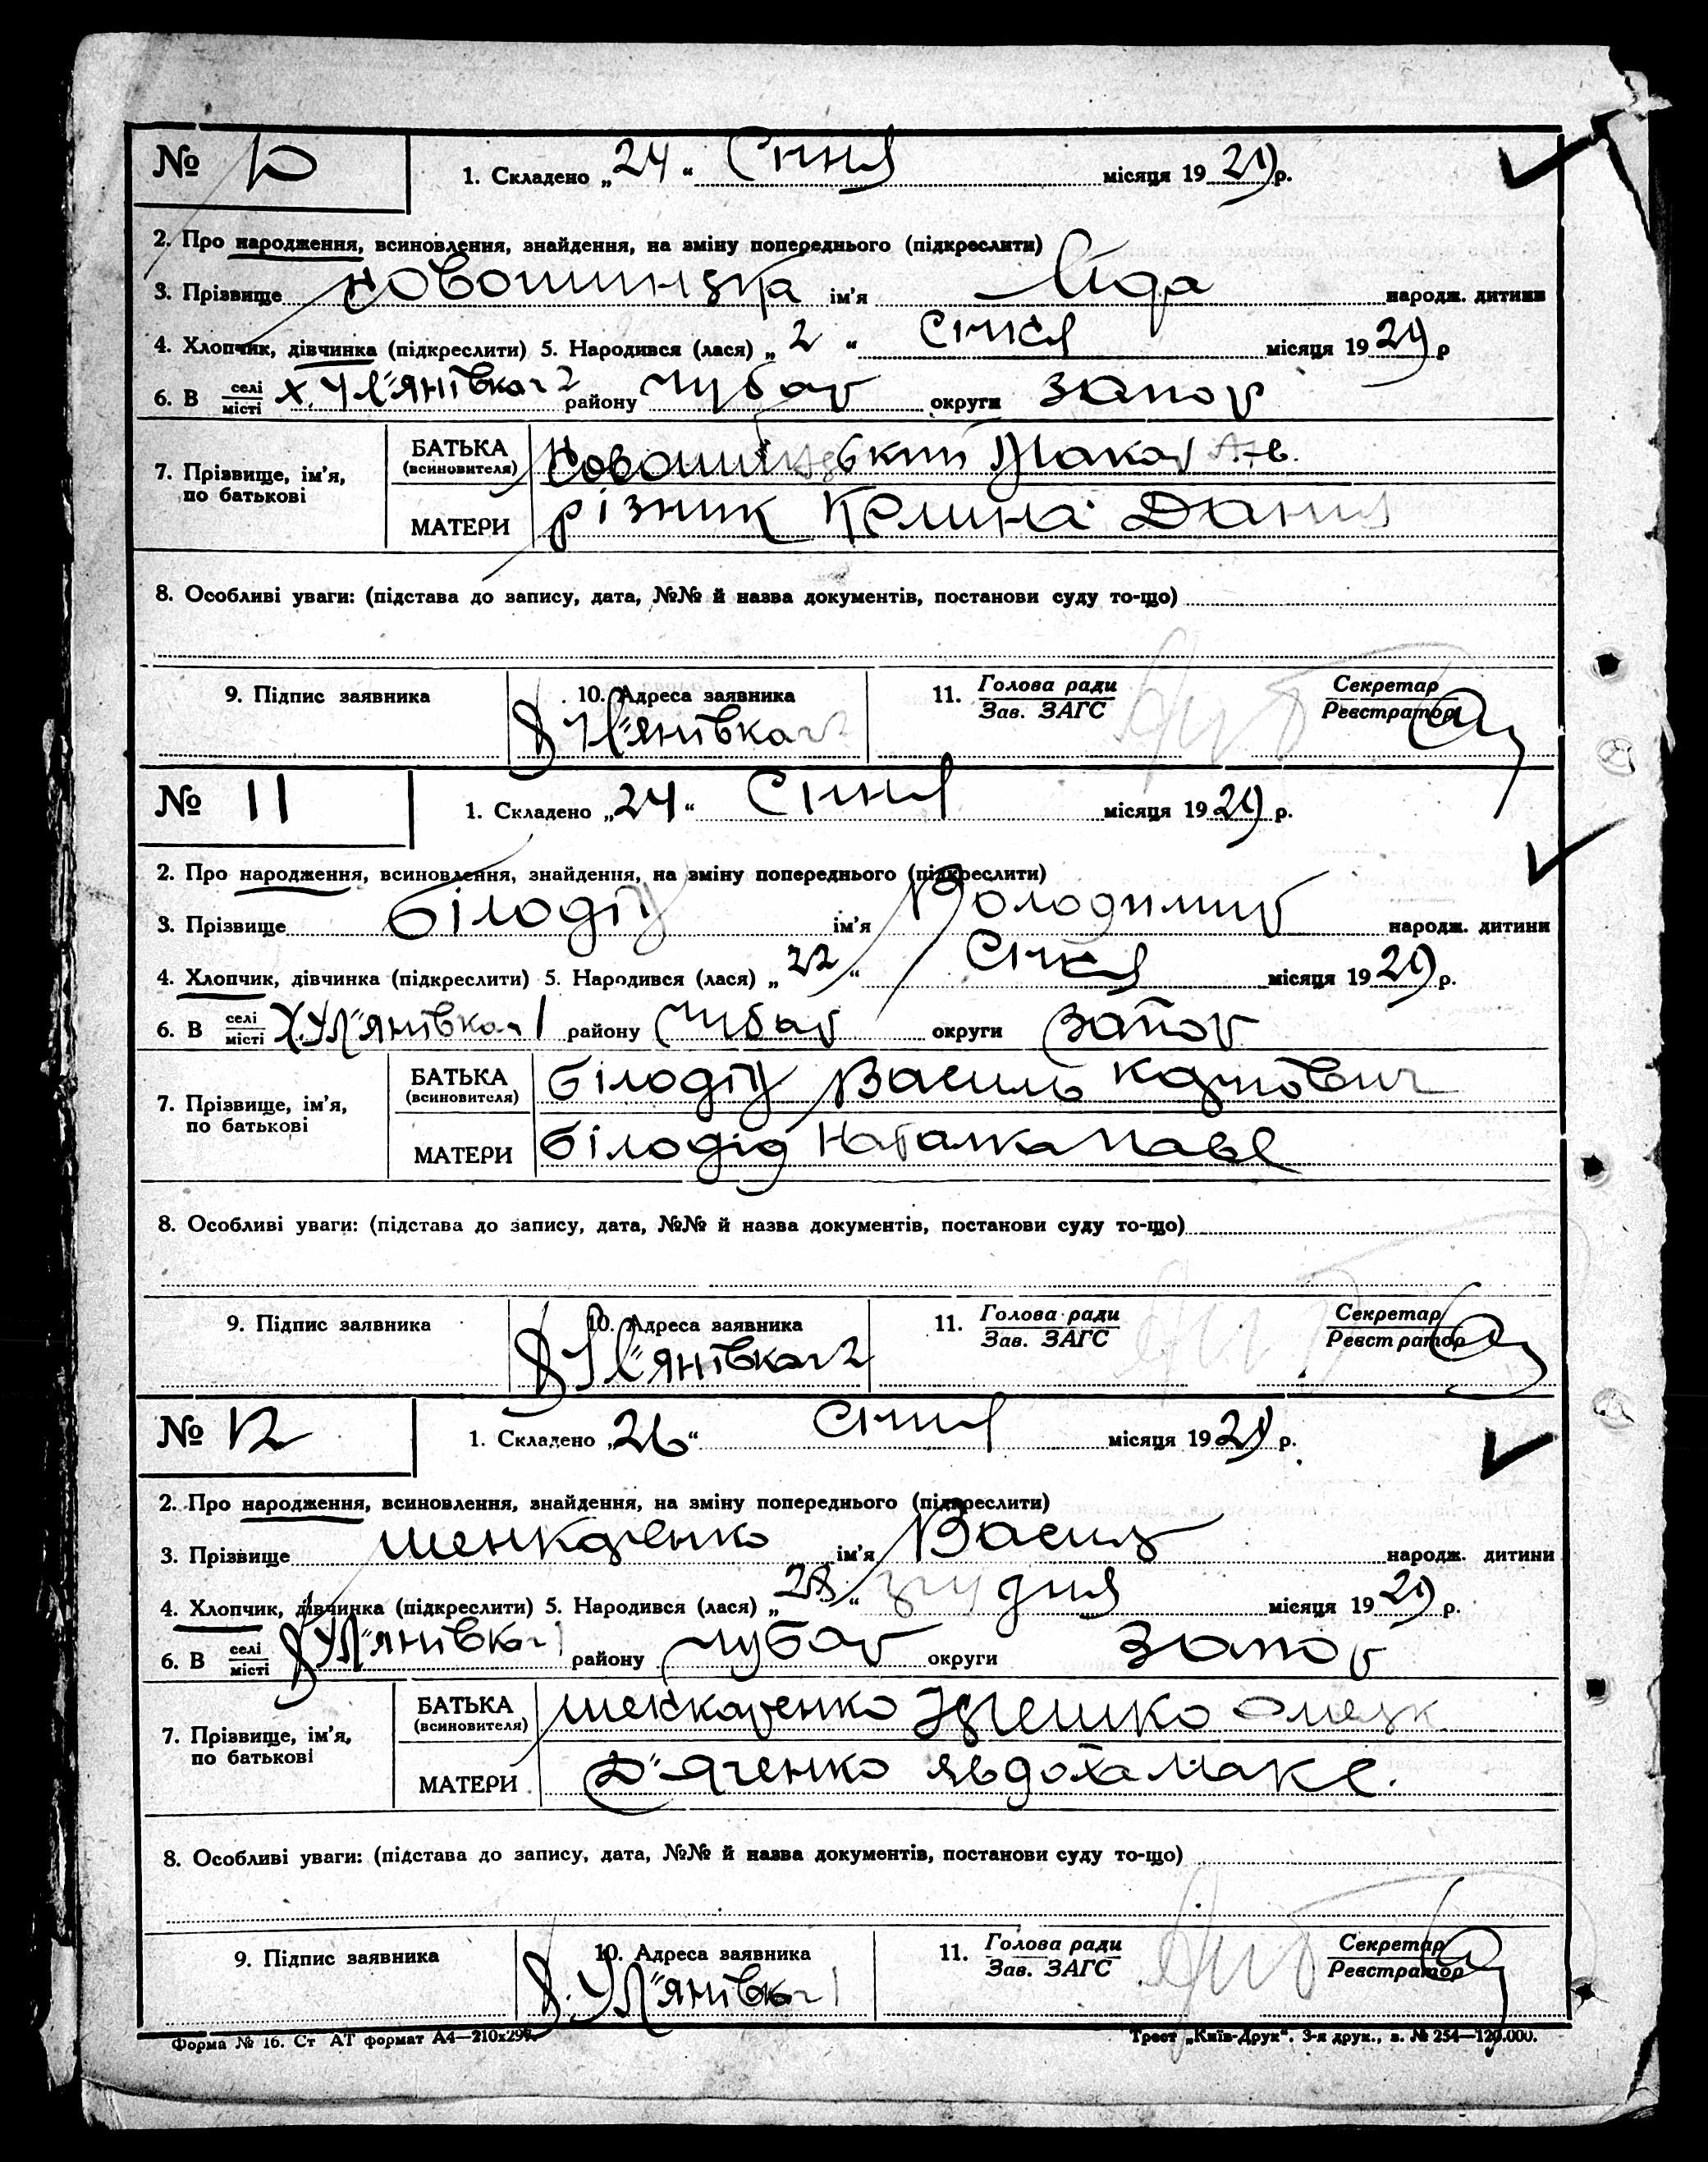 № 10 1. Складено „24“ Січня місяця 1929 р.
2. Про народження, всиновлення, знайдення, на зміну попереднього (підкреслити)
3. Прізвище ім'я Ліда народж. дитини
4. Хлопчик, дівчинка (підкреслити) 5. Народився (лася) „2“ Січня місяця 1929 р
6. В селі місті х. Ул'янівка 2 району Чубар округи Запор
7. Прізвище, ім'я, по батькові
БАТЬКА (всиновителя) Макар
МАТЕРИ Різник Данил
8. Особливі уваги: (підстава до запису, дата, №№ й назва документів, постанови суду то-що)
9. Підпис заявника 10. Адреса заявника 11. Голова ради Зав. ЗАГС Секретар Реєстратор
х Ул'янівка 2
№ 11 1. Складено „24“ Січня місяця 1929 р.
2. Про народження, всиновлення, знайдення, на зміну попереднього (підкреслити)
3. Прізвище Білодід ім'я Володимир народж. дитини
4. Хлопчик, дівчинка (підкреслити) 5. Народився (лася) „22“ Січня місяця 1929 р.
6. В селі місті х. Ул'янівка 1 району Чубар округи Запор
7. Прізвище, ім'я, по батькові
БАТЬКА (всиновителя) Білодід Василь Карпович
МАТЕРИ Білодід Наталка Павл
8. Особливі уваги: (підстава до запису, дата, №№ й назва документів, постанови суду то-що)
9. Підпис заявника 10. Адреса заявника 11. Голова ради Зав. ЗАГС Секретар Реєстратор
х Ул'янівка 2
№ 12 1. Складено „26“ Січня місяця 1929 р.
2. Про народження, всиновлення, знайдення, на зміну попереднього (підкреслити)
3. Прізвище ім'я Василь народж. дитини
4. Хлопчик, дівчинка (підкреслити) 5. Народився (лася) „28“ грудня місяця 1929 р.
6. В селі місті х Ул'янівка 1 району Чубар округи Запор
7. Прізвище, ім'я, по батькові
БАТЬКА (всиновителя)
МАТЕРИ Д'яченко Явдоха Макс.
8. Особливі уваги: (підстава до запису, дата, №№ й назва документів, постанови суду то-що)
9. Підпис заявника 10. Адреса заявника 11. Голова ради Зав. ЗАГС Секретар Реєстратор
х. Ул'янівка 1
Форма № 16. Ст АТ формат А4—210х297. Трест „Київ-Друк“. 3-я друк., з. № 254—120.000.